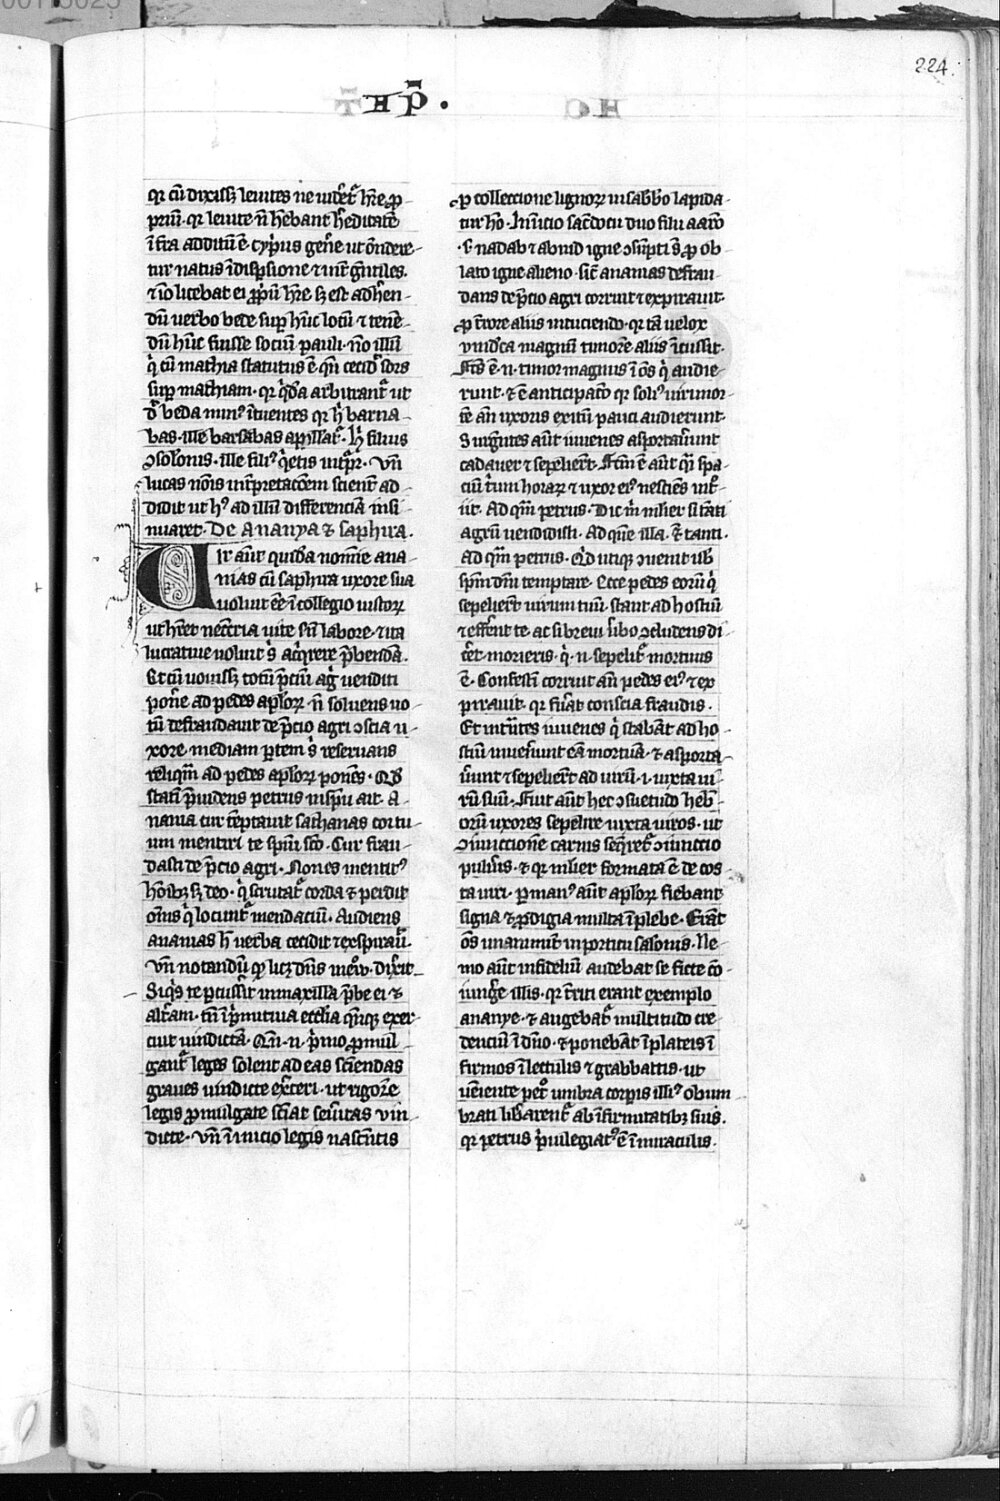 224.
qr cū dixiss; leuites ne uidet᷑ hr̄e ꝓ-
priū. qr leuite n̄ hēbant h̄editatē
īfra additū ē. cyprius gen̄e ut ōndere-
tur natus ī disꝑsione ⁊ int̄ gentiles.
⁊ iō licebat ei ꝓpriū hr̄e s; est adhēn-
dū uerbo bede suꝑ hūc locū ⁊ tenē-
dū hūc fuisse sociū pauli. nō illū
q̄ cū mathia statutus ē. qn̄ cecid̄ sors
suꝑ mathiam. qr qd̄a arbitrant᷑ ut
d̄t beda minꝰ ītuentes qr h̄ barna-
bas. ille barsabas apꝑllat᷑. h̄ filius
ꝯsolōnis. ille filiꝰ q̄etis int̄p̄r. vn̄
lucas nōis int̄pretacōem scient̄ ad-
didit ut hꝰ ad illū differenciā insi-
nuaret. De Ananya ⁊ saphira.
Uir aūt quidā nomīe ana-
nias cū saphira uxore sua
uoluit eē ī collegio iustoꝝ
ut hr̄et necc̄ria uite sn̄ labore. ⁊ ita
lucratiue uoluit s̄ acq̄rere p̄bendā.
Et cū uouiss; totū p̄ciū aḡ uenditi
pon̄e ad pedes apl̄oꝝ n̄ soluens uo-
tū defraudauit de p̄cio agri ꝯscia u-
xore. mediam ꝑtem s̄ reseruans
reliqm̄ ad pedes apl̄oꝝ ponēs. Qd̄
statī p̄uidens petrus in sp̄u ait. A-
nania cur tēptauit sathanas cor tu-
um mentiri te spiū sc̄o. Cur frau-
dasti de p̄cio agri. Nones mentitꝰ
hōibꝫ s; deo. q̄ scrutat᷑ corda ⁊ perdit
om̄s q̄ locunt᷑ mendaciū. Audiens
ananias h̄ uerba cecidit ⁊ exspirauit.
vn̄ notandū ꝙ licꝫ dn̄s dixit
Siq̄s te ꝑcuss̄it in maxilla p̄be ei ⁊
alt̄am. tn̄ ī p̄mitiua eccl̄ia exer-
cuit uindictā. Qm̄. n. p̄mo ꝓmul-
gant᷑ leges solent ad eas sc̄iendas
graues uindicte exc̄eri. ut rigore
legis ꝓmulgate sc̄iat seūitas vin-
dicte. vn̄ ī inicio legis nascētis
ꝓ colleccione lignoꝝ in sabb̄o lapida-
tur hō. In inicio sac̄docii duo filii aarō
.s. nadab ⁊ abiud igne ꝯsūpti s̄ ꝓ ob-
lato igne alieno. sic̄ ananias defrau-
dans de p̄cio agri corruit ⁊ expirauit.
ꝓ t̄rore aliis incuciendo. qr tā uelox
vindc̄a magnū timorē aliis īcussit.
Fc̄s ē. n. timor magnus ī ōs q̄ audie-
runt. ⁊ ē anticipatō qr solꝰ uiri mor-
tē an̄ uxoris exitū pauci audierunt.
Surḡntes aūt iuuenes asportauerunt
cadauer ⁊ sepelierūt. Fcm̄ ē aūt qi spa-
ciū t̄ium horaꝝ ⁊ uxor eiꝰ nesciēs int̄-
iit. Ad qm̄ petrus. Dic m̄ mulier si tāti
agrū uendidisti. Ad que illa. Ē tanti.
Ad qm̄ petrus. Qd̄ utiqꝫ ꝯuenit uob̄
spm̄ dn̄i temptare. Ecce pedes eorū q̄
sepelierūt uirum tuū. stant ad hostiū
⁊ effent te. ac si breui ūbo ꝯcludens di-
c̄et. morieris. q̄. n. sepelit᷑ mortuus
ē. Confestī corruit an̄ pedes eiꝰ ⁊ ex-
pirauit. qr fūat conscia fraudis.
Et int̄ntes iuuenes q̄ stabāt ad ho-
stiū inuen̄unt eā mortuā. ⁊ asporta-
u̅unt ⁊ sepelierūt ad uirū. i. iuxta ui-
rū suū. Fuit aūt hec ꝯsuetudo heb̄-
orū uxores sepelire iuxta uiros. ut
ꝯiūccionē carnis seq̄ret᷑ ꝯiūccio
pulu̅is. ⁊ qr mulier formata ē de cos-
ta uiri. ꝑ manꝰ aūt apl̄oꝝ fiebant
signa ⁊ ꝓdigia multa ī plebe. Erāt
ōs unanimit̄ in porticu salōnis. Ne-
mo aūt infideliū audebat se ficte cō-
iung̅e illis. qr t̄riti erant exemplo
ananye. ⁊ augebat᷑ multitudo cre-
denciū ī dn̄o. ⁊ ponebāt ī plateis ī-
firmos ī lectulis ⁊ grabbattis. ut
uēiente pet̄o umbra corpis illiꝰ obum-
brati lib̄arent᷑ ab īfirmitatibꝫ suis.
qr petrus p̄uilegiatꝰ ē ī miraculis.